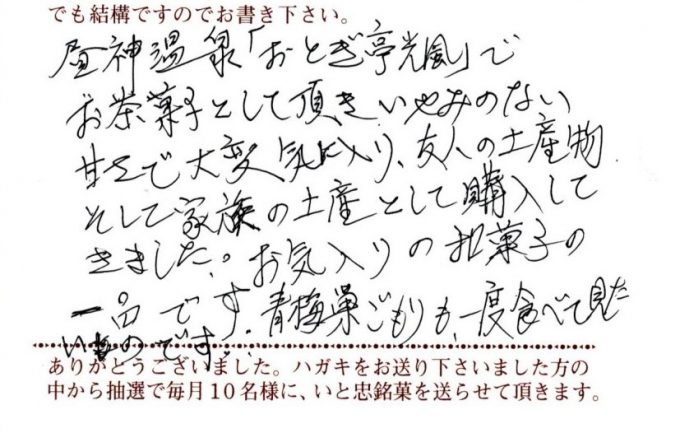 でも結構ですのでお書き下さい。
昼神温泉「おとぎ亭光風」で
お茶菓子として頂きいやみのない
甘さで大変気に入り、友人の土産物
そして家族の土産として購入して
きました。お気入りの和菓子の
一品です。青梅巣ごもりも、一度食べて見た
いものです‥
ありがとうございました。ハガキをお送り下さいました方の
中から抽選で毎月10名様に、いと忠銘菓を送らせて頂きます。